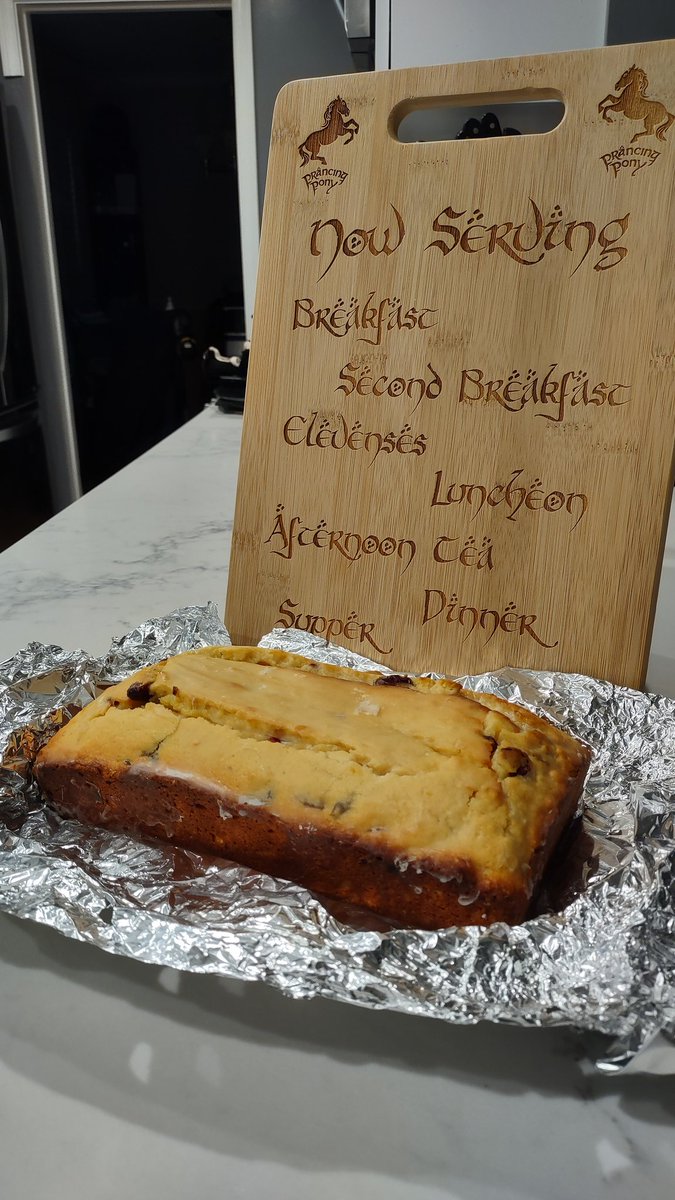 Prancing Pony
Prancing Pony
Now Serving
Breakfast
Second Breakfast
Elevenses
Luncheon
Afternoon Tea
Dinner
Supper